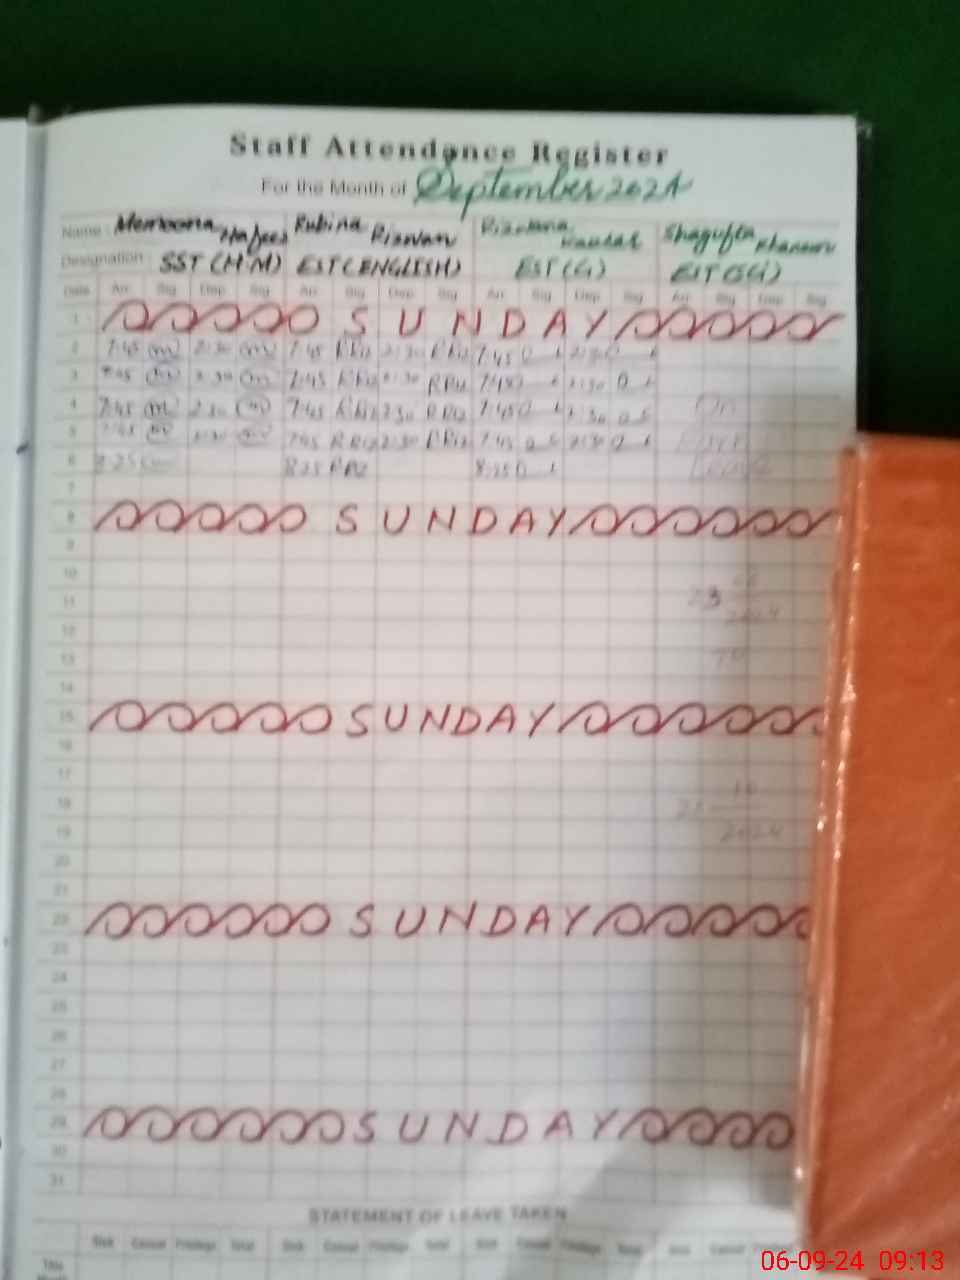 Staff Attendance Register
For the Month of September 2024
Name : Memoona Hafeez Rubina Rizwan Rizwana Kausar Shagufta Khanam
Designation : SST (M.M) EST (ENGLISH) EST (G) EST (SCI)
Date Arr Sig Dep Sig Arr Sig Dep Sig Arr Sig Dep Sig Arr Sig Dep Sig
1 SUNDAY
2 7:45 m 2:30 m 7:45 RRiz 2:30 RRiz 7:45 2:30
3 7:45 m 2:30 m 7:45 RRiz 2:30 RRiz 7:45 2:30
4 7:45 m 2:30 m 7:45 RRiz 2:30 RRiz 7:45 2:30 On
5 7:45 m 2:30 m 7:45 RRiz 2:30 RRiz 7:45 2:30
6 8:25 8:25 RRiz 8:25 Leave
7
8 SUNDAY
9
10
11 2024
12
13 To
14
15 SUNDAY
16
17
18
19 2024
20
21
22 SUNDAY
23
24
25
26
27
28
29 SUNDAY
30
31
STATEMENT OF LEAVE TAKEN
Sick Casual Privilege Total Sick Casual Privilege Total Sick Casual Privilege Total Sick Casual Privilege
This
Month
06-09-24 09:13